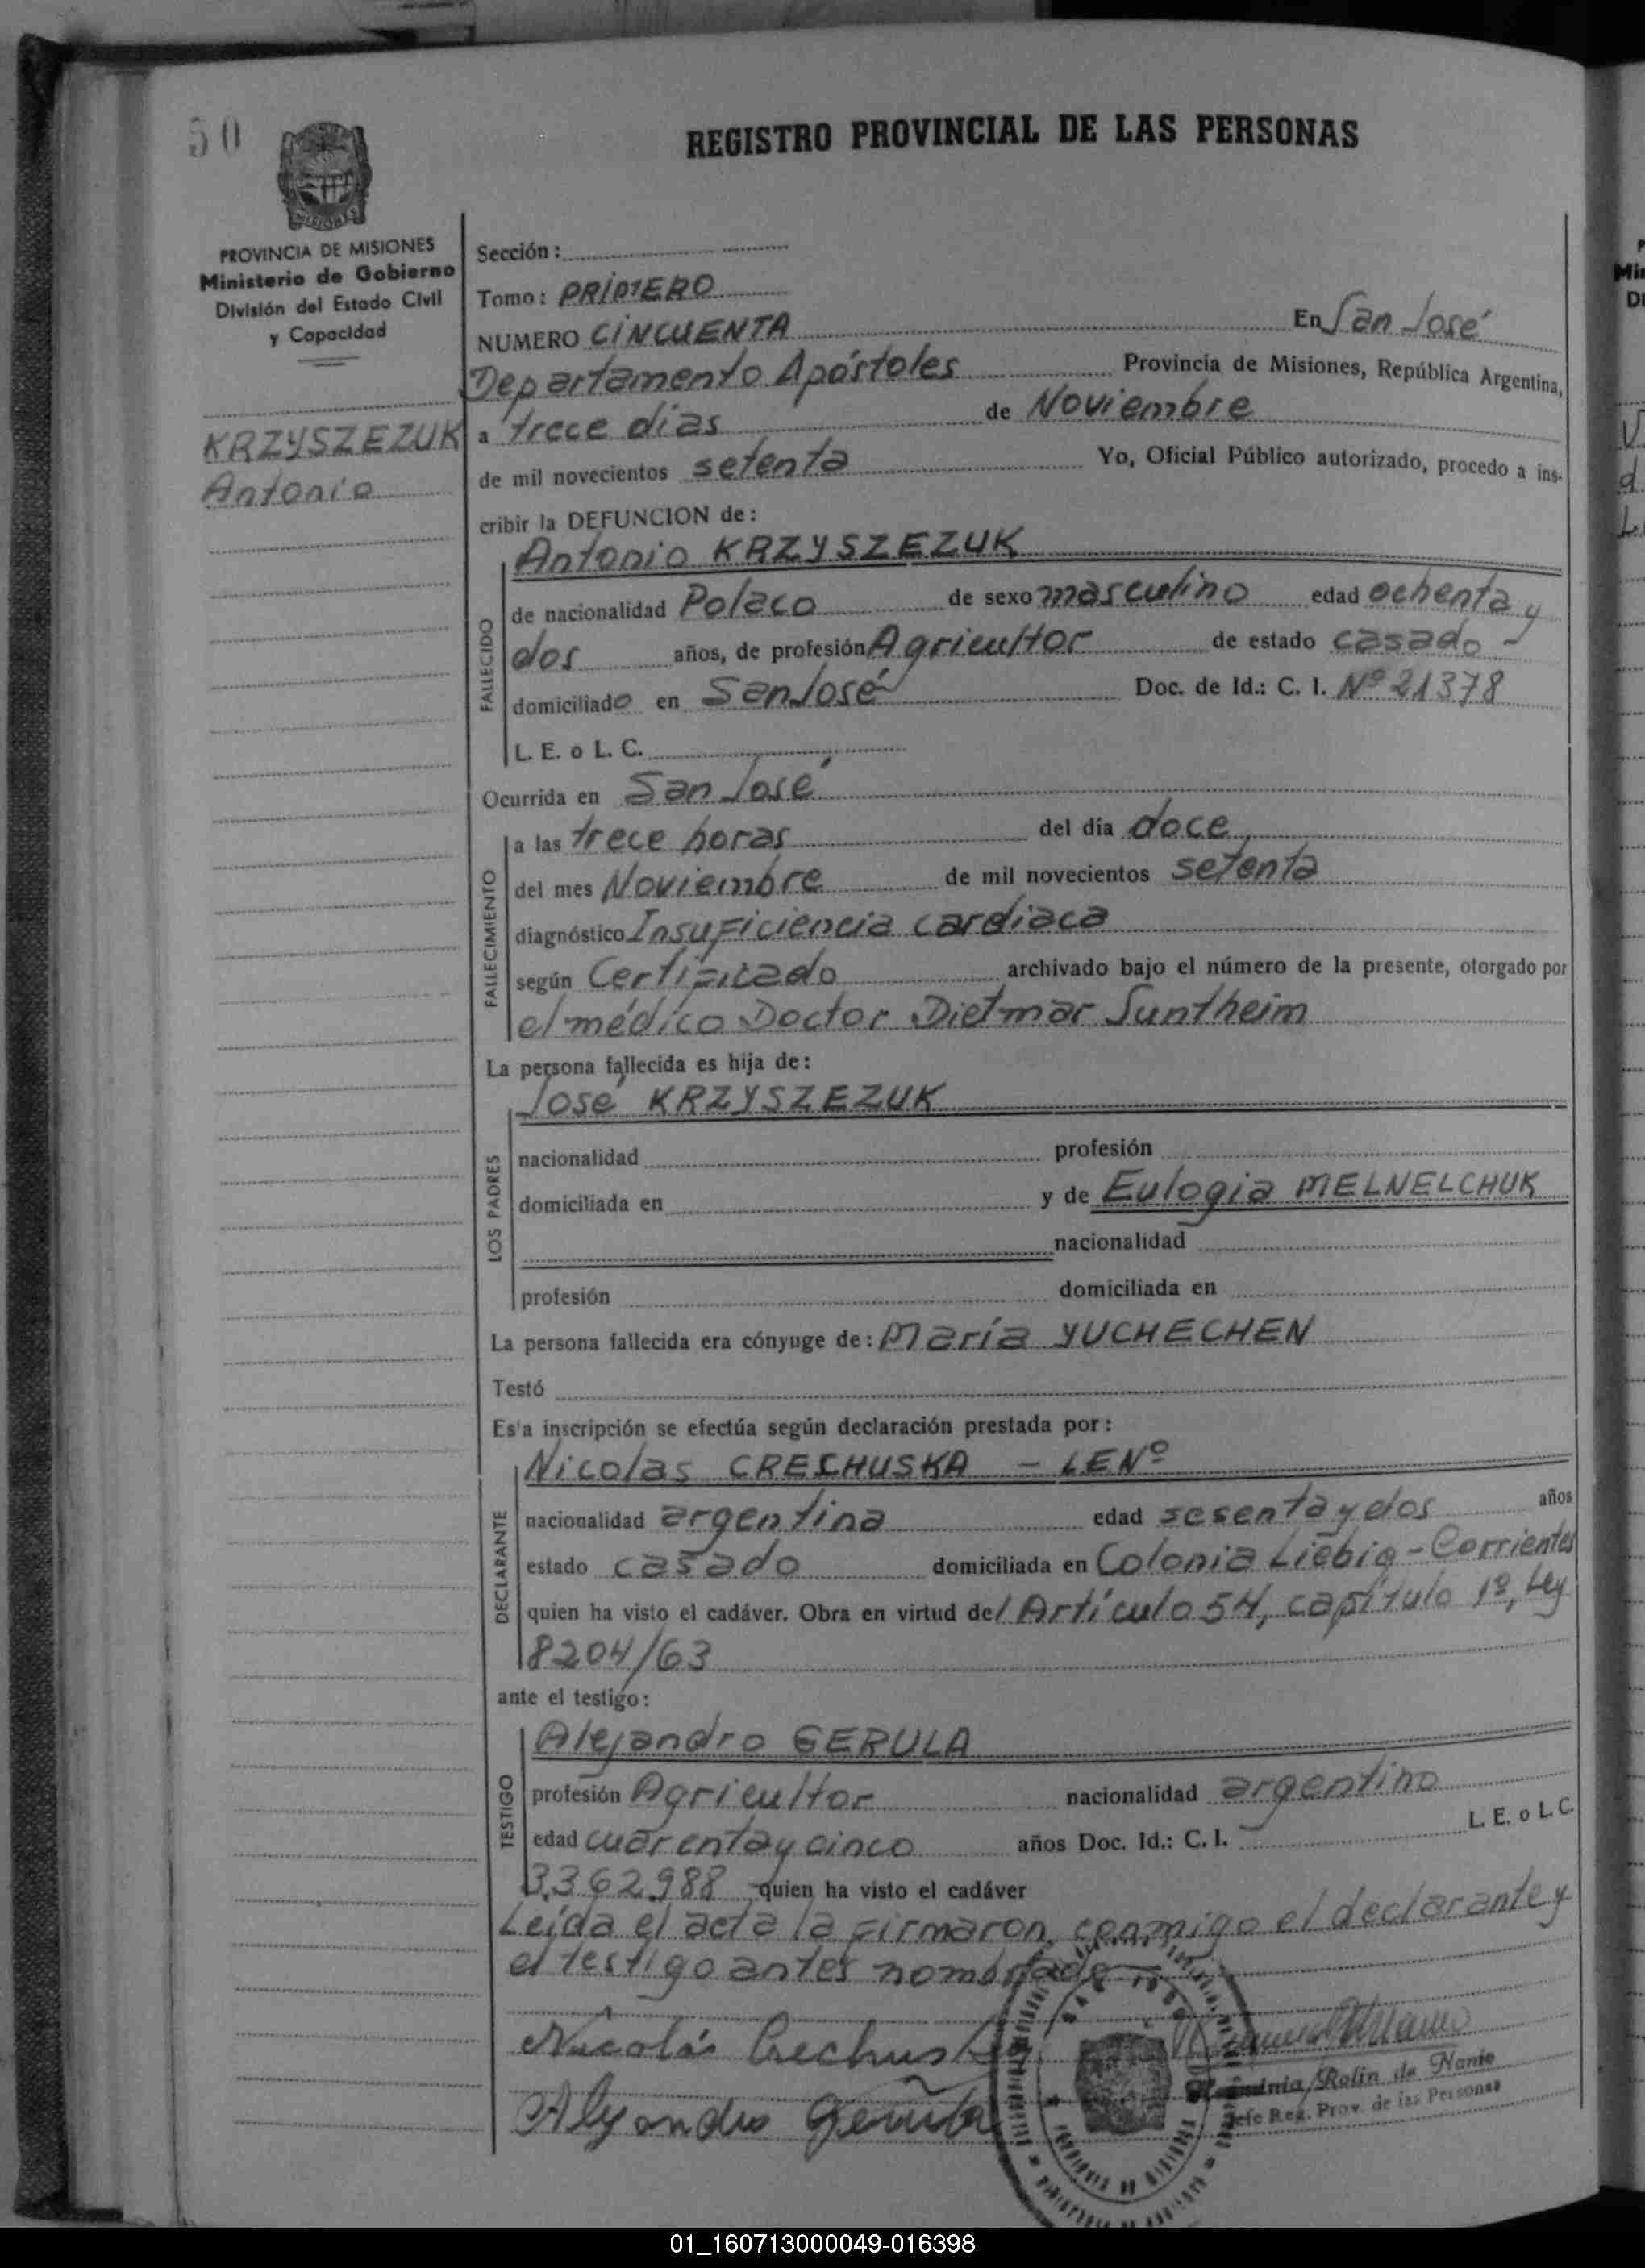 50
REGISTRO PROVINCIAL DE LAS PERSONAS
MISIONES
PROVINCIA DE MISIONES
Ministerio de Gobierno
División del Estado Civil
y Capacidad
KRZYSZEZUK
Antonio
Sección:
Tomo: PRIMERO
NUMERO CINCUENTA En San José
Departamento Apóstoles Provincia de Misiones, República Argentina,
a trece dias de Noviembre
de mil novecientos setenta Yo, Oficial Público autorizado, procedo a ins-
cribir la DEFUNCION de:
Antonio KRZYSZEZUK
FALLECIDO
de nacionalidad Polaco de sexo masculino edad ochenta y
dos años, de profesión Agricultor de estado casado -
domiciliado en San José Doc. de Id.: C. I. Nº 21378
L. E. o L. C.
Ocurrida en San José
FALLECIMIENTO
a las trece horas del día doce
del mes Noviembre de mil novecientos setenta
diagnóstico Insuficiencia cardiaca
según Certificado archivado bajo el número de la presente, otorgado por
el médico Doctor Dietmar Suntheim
La persona fallecida es hija de:
José KRZYSZEZUK
LOS PADRES
nacionalidad profesión
domiciliada en y de Eulogia MELNELCHUK
nacionalidad
profesión domiciliada en
La persona fallecida era cónyuge de: María YUCHECHEN
Testó
Es'a inscripción se efectúa según declaración prestada por:
Nicolas CRECHUSKA - LE Nº
DECLARANTE
nacionalidad argentina edad sesenta y dos años
estado casado domiciliada en Colonia Liebig - Corrientes
quien ha visto el cadáver. Obra en virtud del Artículo 54, capítulo 1º, Ley
8204/63
ante el testigo:
Alejandro GERULA
TESTIGO
profesión Agricultor nacionalidad argentino
edad cuarenta y cinco años Doc. Id.: C. I. L. E. o L. C.
3.362.988 quien ha visto el cadáver
Leída el acta la firmaron conmigo el declarante y
el testigo antes nombrado
Nicolás Crechuska
Alejandro Gerula
Rolin de Nanio
Jefe Reg. Prov. de las Personas
01_160713000049-016398